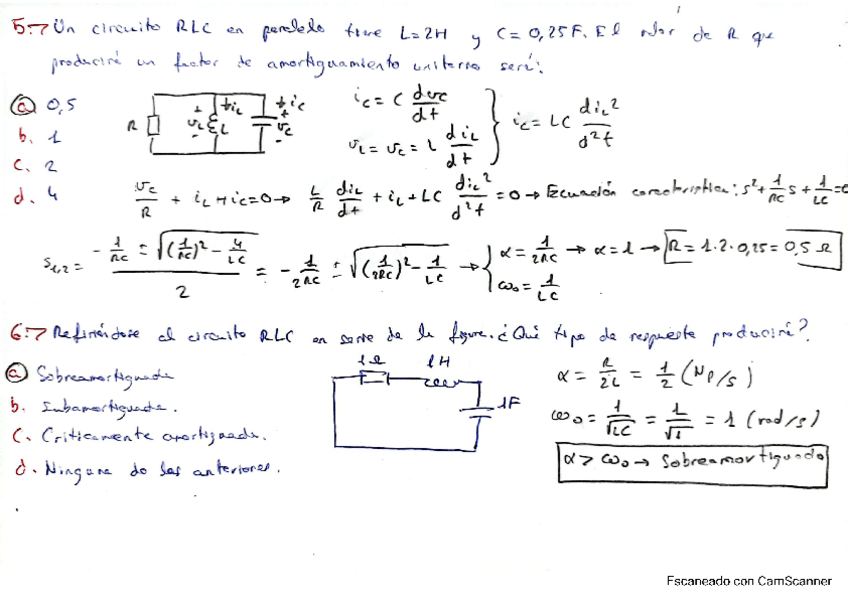 5.- Un circuito RLC en paralelo tiene L=2H y C=0,25F. El valor de R que
producirá un factor de amortiguamiento unitario será:
a. 0,5
b. 1
c. 2
d. 4
R vL iL L iC vC
iC = C dvc/dt
vL = vC = L diL/dt
iC = LC diL²/d²t
vc/R + iL + iC = 0 → L/R diL/dt + iL + LC diL²/d²t = 0 → Ecuación característica: s² + 1/RC s + 1/LC = 0
S1,2 = (-1/RC ± √((1/RC)² - 4/LC))/2 = -1/2RC ± √((1/2RC)² - 1/LC) → { α = 1/2RC → α = 1 → R = 1·2·0,25 = 0,5 Ω
ωo = 1/LC
6.- Refiriéndose al circuito RLC en serie de la figura. ¿Qué tipo de respuesta producirá?
a. Sobreamortiguada
b. Subamortiguada.
c. Críticamente amortiguada.
d. Ninguna de las anteriores.
1Ω 1H
1F
α = R/2L = 1/2 (Np/s)
ωo = 1/√LC = 1/√1 = 1 (rad/s)
α > ωo → Sobreamortiguado
Escaneado con CamScanner